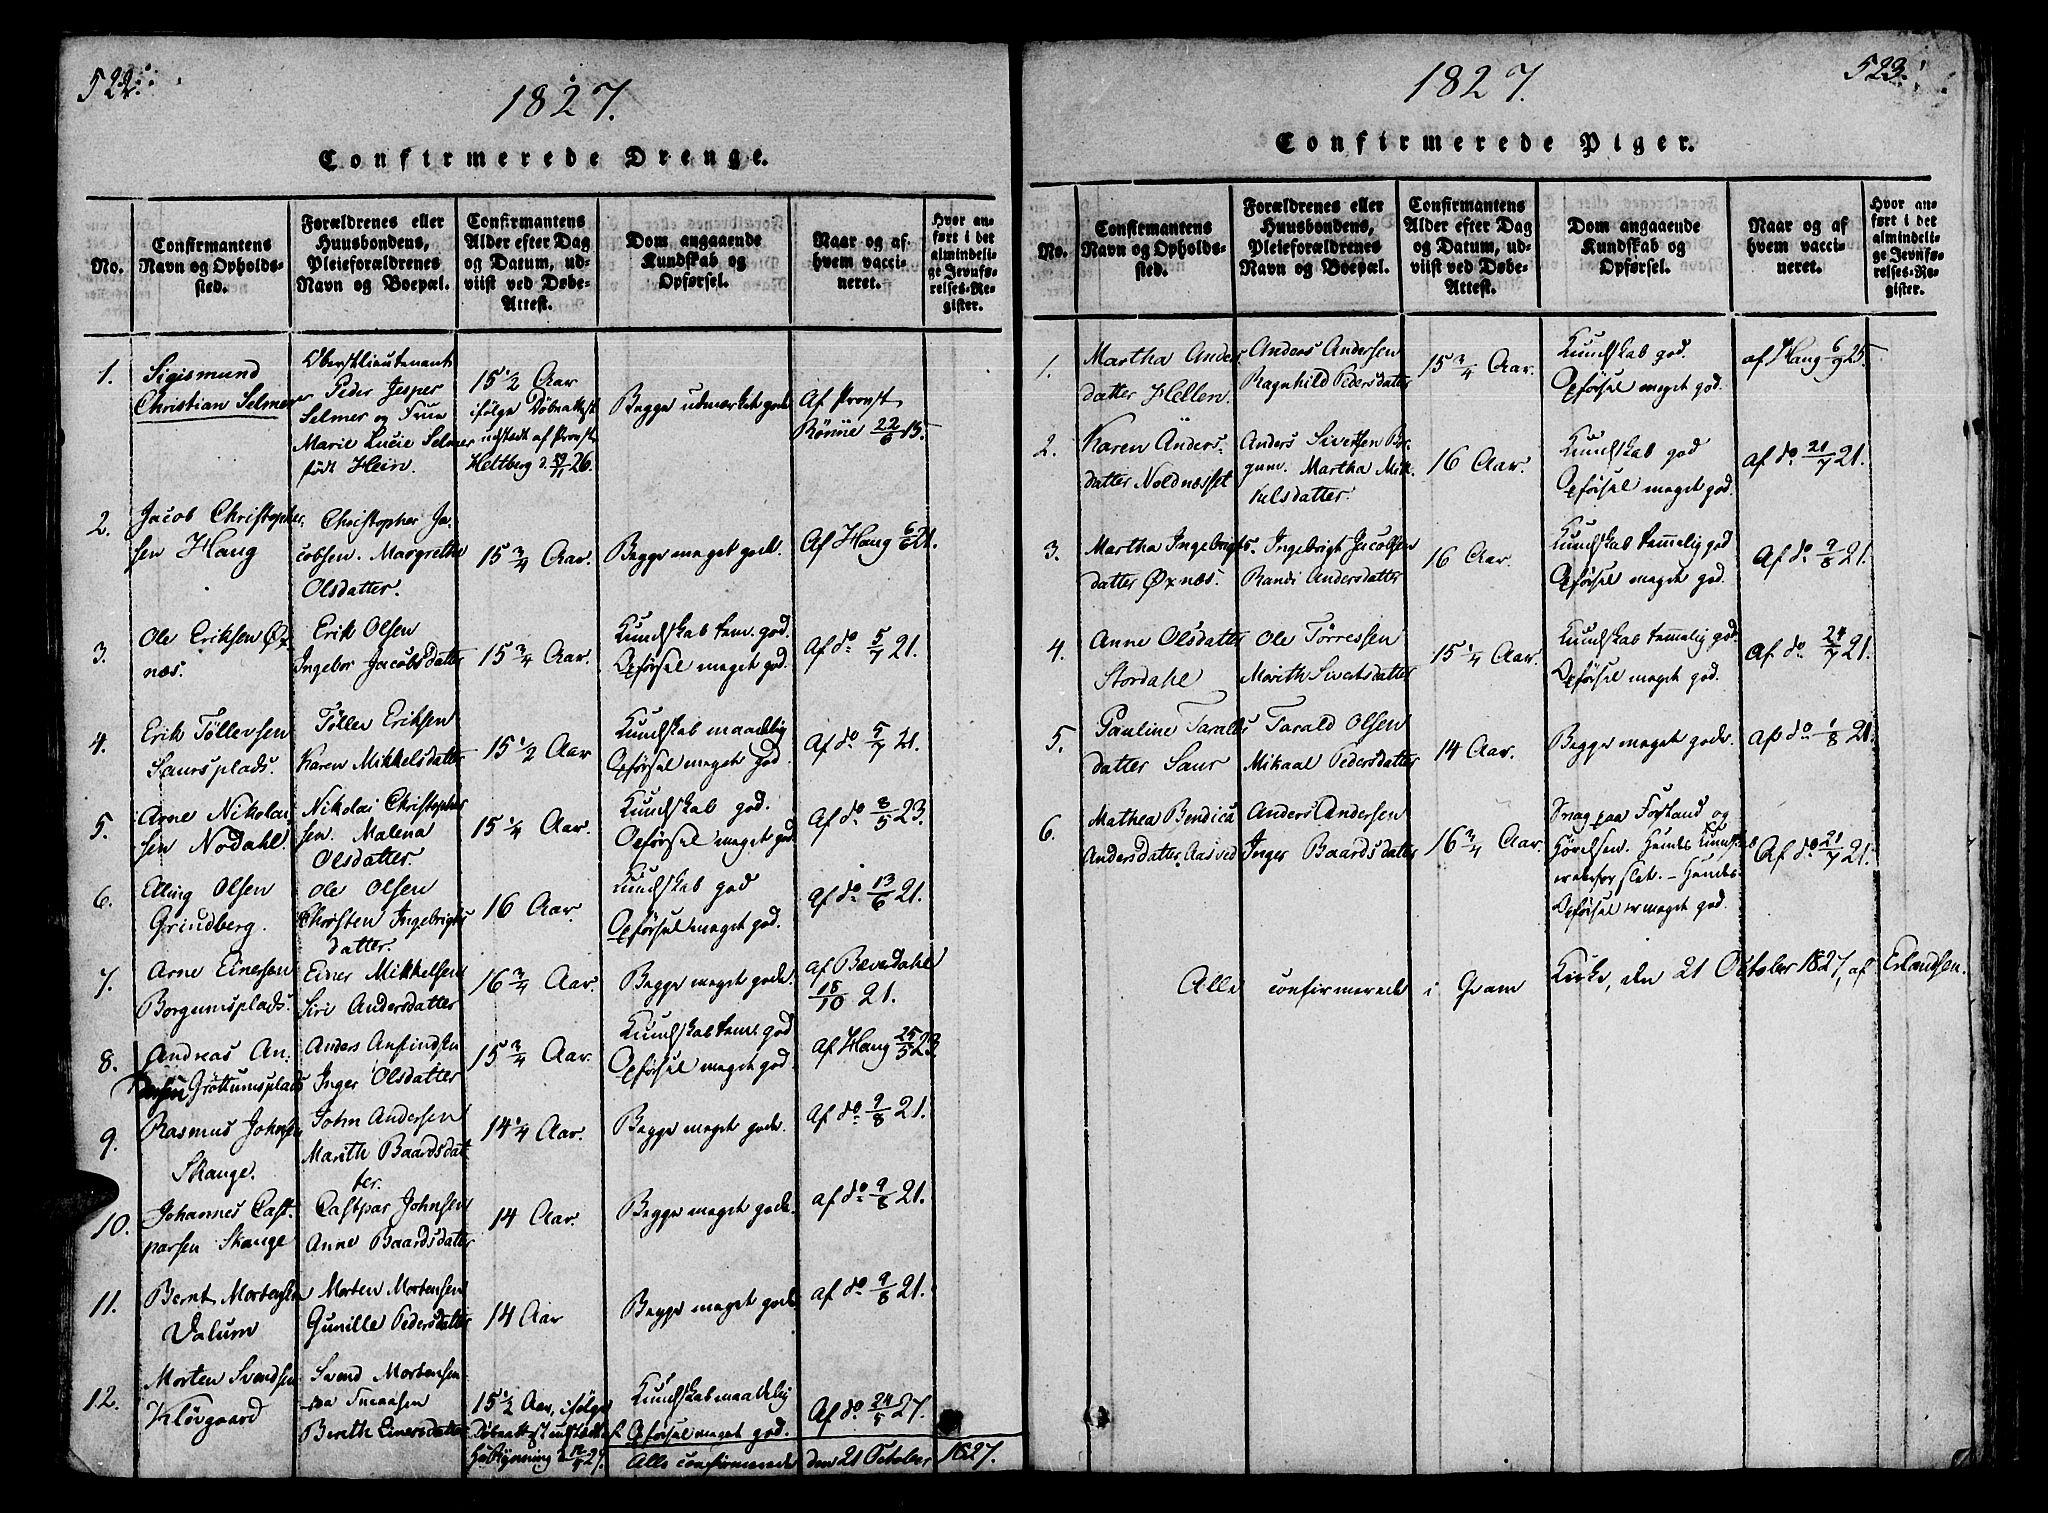 522.
1827.
Confirmerede Drenge.
No.
Confirmantens
Navn og Opholds-
sted.
Forældrenes eller
Huusbondens,
Pleieforældrenes
Navn og Boepæl.
Confirmantens
Alder efter Dag
og Datum, ud-
viist ved Døbe-
Attest.
Dom angaaende
Kundskab og
Opførsel.
Naar og af
hvem vacci-
neret.
Hvor an-
ført i det
almindeli-
ge Jevnfø-
relses-Re-
gister.
1.
Sigismund
Christian Selmer
Oberstlieutenant
Peder Jesper
Selmer og Frue
Marie Lucie Selmer
født Hein.
15 1/2 Aar
ifølge Døbeattest
udstedt af Provst
Heltberg d. 11 26.
Begge udmærket gode
Af Provst
Rönne 22/6 15.
2.
Jacob Christopher-
sen Haug
Christopher Ja-
cobsen. Margrethe
Olsdatter.
15 3/4 Aar.
Begge meget gode.
Af Haug 6/6 21.
3.
Ole Eriksen Øx-
næs.
Erik Olsen
Ingebor Jacobsdatter
15 3/4 Aar.
Kundskab tem. god.
Opførsel meget god.
Af do 5/7 21.
4.
Erik Töllevsen
Saursplads.
Töllev Eriksen
Karen Mikkelsdatter
15 1/2 Aar
Kundskab maadelig
Opförsel meget god.
Af do 5/7 21.
5.
Arne Nikolai-
sen Nodahl.
Nikolai Christopher
sen. Malena
Olsdatter.
15 1/4 Aar.
Kundskab god.
Opførsel meget god
Af do 8/5 23.
6.
Elling Olsen
Grindberg.
Ole Olsen
Kirsten Ingebrigts
datter.
16 Aar.
Kundskab god
Opførsel meget god.
Af do 13/6 21.
7.
Arne Einersen
Borgumsplads.
Einer Mikkelsen
Siri Andersdatter
16 3/4 Aar.
Begge meget gode.
af Bævedahl
18/10 21.
8.
Andreas An-
dersen, Gröttumsplads
Anders Anfindsen
Inger Olsdatter
15 3/4 Aar.
Kundskab tem. god
Opförsel meget god.
Af Haug 25/5 23.
9.
Rasmus Johnsen
Skauge.
John Andersen
Marith Baardsdat-
ter.
14 1/4 Aar.
Begge meget gode.
Af do 9/8 21.
10.
Johannes Cast-
parsen Skauge
Castpar Johnsen
Anne Baardsdatter
14 Aar.
Begge meget gode.
af do 9/8 21.
11.
Bernt Mortensen
Valum
Morten Mortensen
Gunille Pedersdatter
14 Aar
Begge meget gode
af do 9/8 21.
12.
Morten Svendsen
Klövgaard
Svend Mortensen
Snaasen
Berith Einersdatter
15 1/2 Aar, ifølge
Döbeattest udstedt af
Hr. Rynning d. 12/4 27.
Kundskab maadelig
Opförsel meget god.
Af do 24/5 27.
Alle confirmerede den 21 October 1827.
523.
1827.
Confirmerede Piger.
No.
Confirmantens
Navn og Opholds-
sted.
Forældrenes eller
Huusbondens,
Pleieforældrenes
Navn og Boepæl.
Confirmantens
Alder efter Dag
og Datum, ud-
viist ved Døbe-
Attest.
Dom angaaende
Kundskab og
Opførsel.
Naar og af
hvem vacci-
neret.
Hvor an-
ført i det
almindeli-
ge Jevnfø-
relses-Re-
gister.
1.
Martha Anders-
datter Hellen.
Anders Andersen
Ragnhild Pedersdatter
15 3/4 Aar.
Kundskab god.
Opførsel meget god.
af Haug 6/9 25.
2.
Karen Anders-
datter Noldnæsset
Anders Sivertsen Bor-
gum. Martha Mik-
kelsdatter.
16 Aar.
Kundskab god
Opförsel meget god.
af do 21/7 21.
3.
Martha Ingebrigts-
datter Øxnæs.
Ingebrigt Jacobsen
Randi Andersdatter
16 Aar.
Kundskab temmelig god
Opførsel meget god.
Af do 9/8 21.
4.
Anne Olsdatter
Stordahl
Ole Törressen
Marith Sivertsdatter
15 1/4 Aar.
Kundskab temmelig god
Opførsel meget god.
Af do 24/7 21.
5.
Pauline Taralds
datter Saur
Tarald Olsen
Mikaal Pedersdatter
14 Aar.
Begge meget gode.
af do 1/8 21.
6.
Mathea Bendica
Andersdatter, Aasved
Anders Andersen
Inger Baardsdatter
16 3/4 Aar.
Svag paa Forstand og
Hörelsen. Hendes Kundskab
er derfor slet. - Hendes
Opførsel er meget god.
Af do 21/7 21.
Alle confirmerede i Qvam Kirke, den 21 October 1827, af Erlandsen.